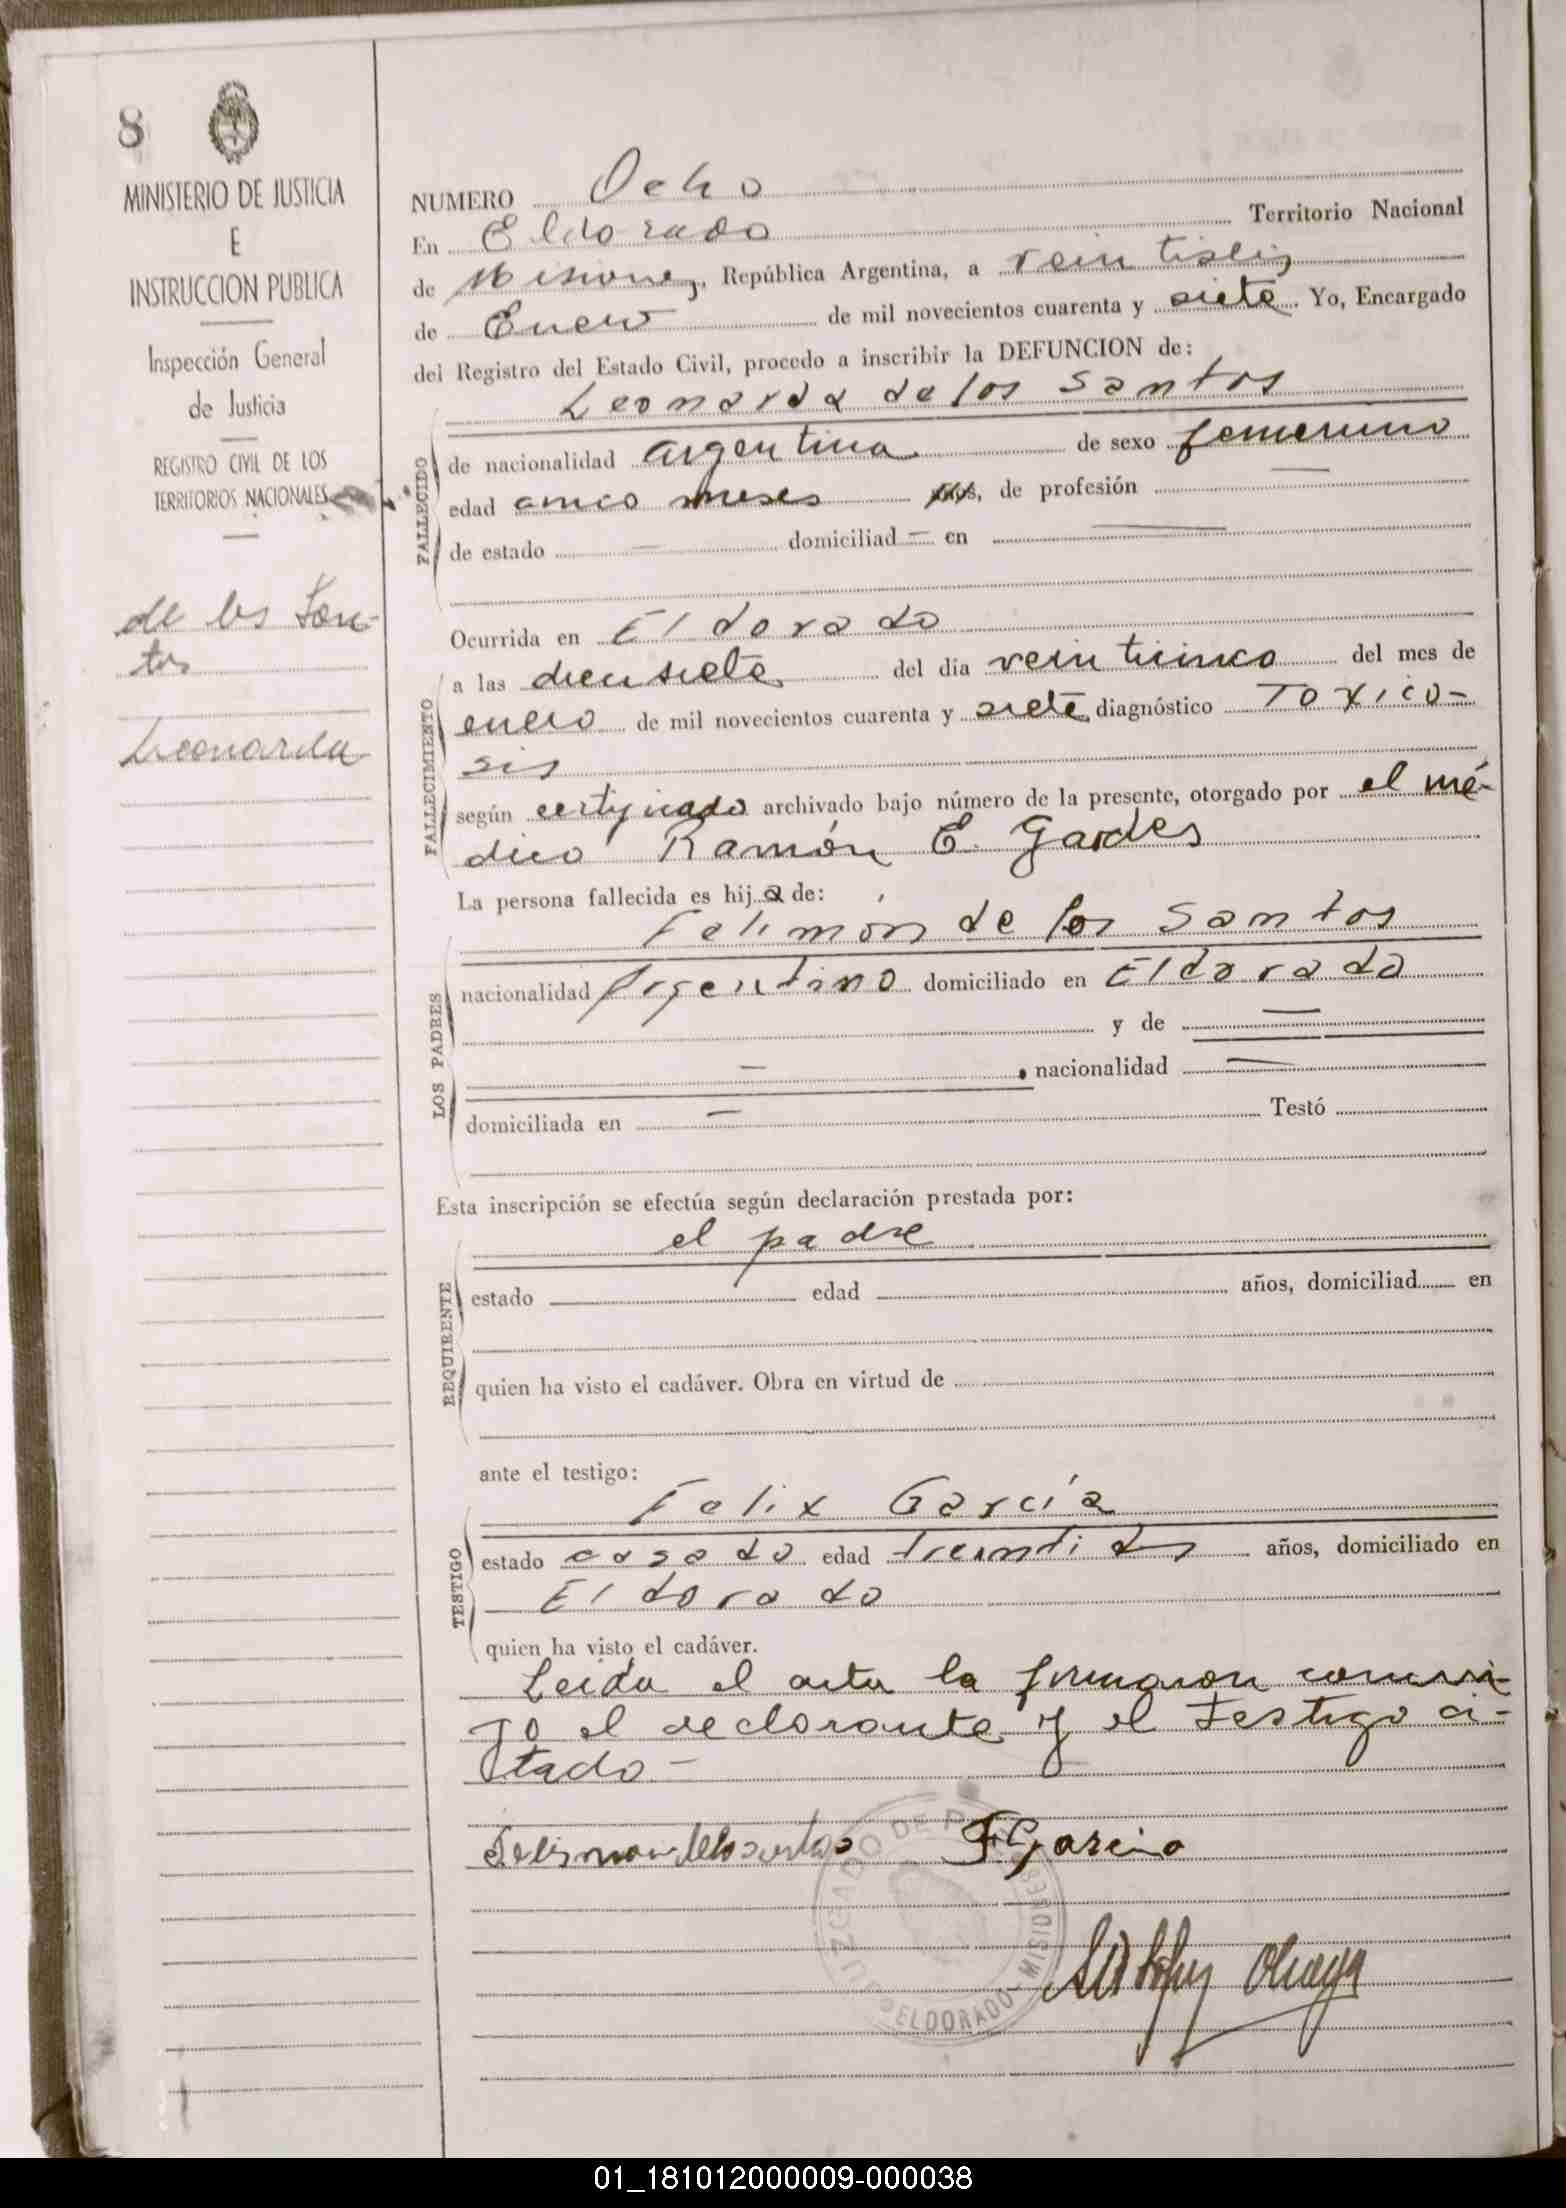 8
MINISTERIO DE JUSTICIA
E
INSTRUCCION PUBLICA
Inspección General
de Justicia
REGISTRO CIVIL DE LOS
TERRITORIOS NACIONALES
de los San-
tos
Leonarda
NUMERO Ocho
En Eldorado Territorio Nacional
de Misiones, República Argentina, a veintiseis
de Enero de mil novecientos cuarenta y siete. Yo, Encargado
del Registro del Estado Civil, procedo a inscribir la DEFUNCION de:
Leonarda de los Santos
FALLECIDO
de nacionalidad argentina de sexo femenino
edad cinco meses años, de profesión —
de estado — domiciliad — en —
Ocurrida en Eldorado
FALLECIMIENTO
a las diecisiete del día veinticinco del mes de
enero de mil novecientos cuarenta y siete diagnóstico Toxico-
sis
según certificado archivado bajo número de la presente, otorgado por el mé-
dico Ramón E. Gardes
La persona fallecida es hija de:
Felimón de los Santos
LOS PADRES
nacionalidad Argentino domiciliado en Eldorado
y de —
— nacionalidad —
domiciliada en — Testó
Esta inscripción se efectúa según declaración prestada por:
el padre
REQUIRENTE
estado edad años, domiciliad en
quien ha visto el cadáver. Obra en virtud de
ante el testigo:
Felix García
TESTIGO
estado casado edad treinti dos años, domiciliado en
Eldorado
quien ha visto el cadáver.
Leida el acta la firmaron conmi-
go el declarante y el testigo ci-
tado –
Felimon delosantos F Garcia
JUZGADO DE P
ELDORADO - MISIONES
01_181012000009-000038